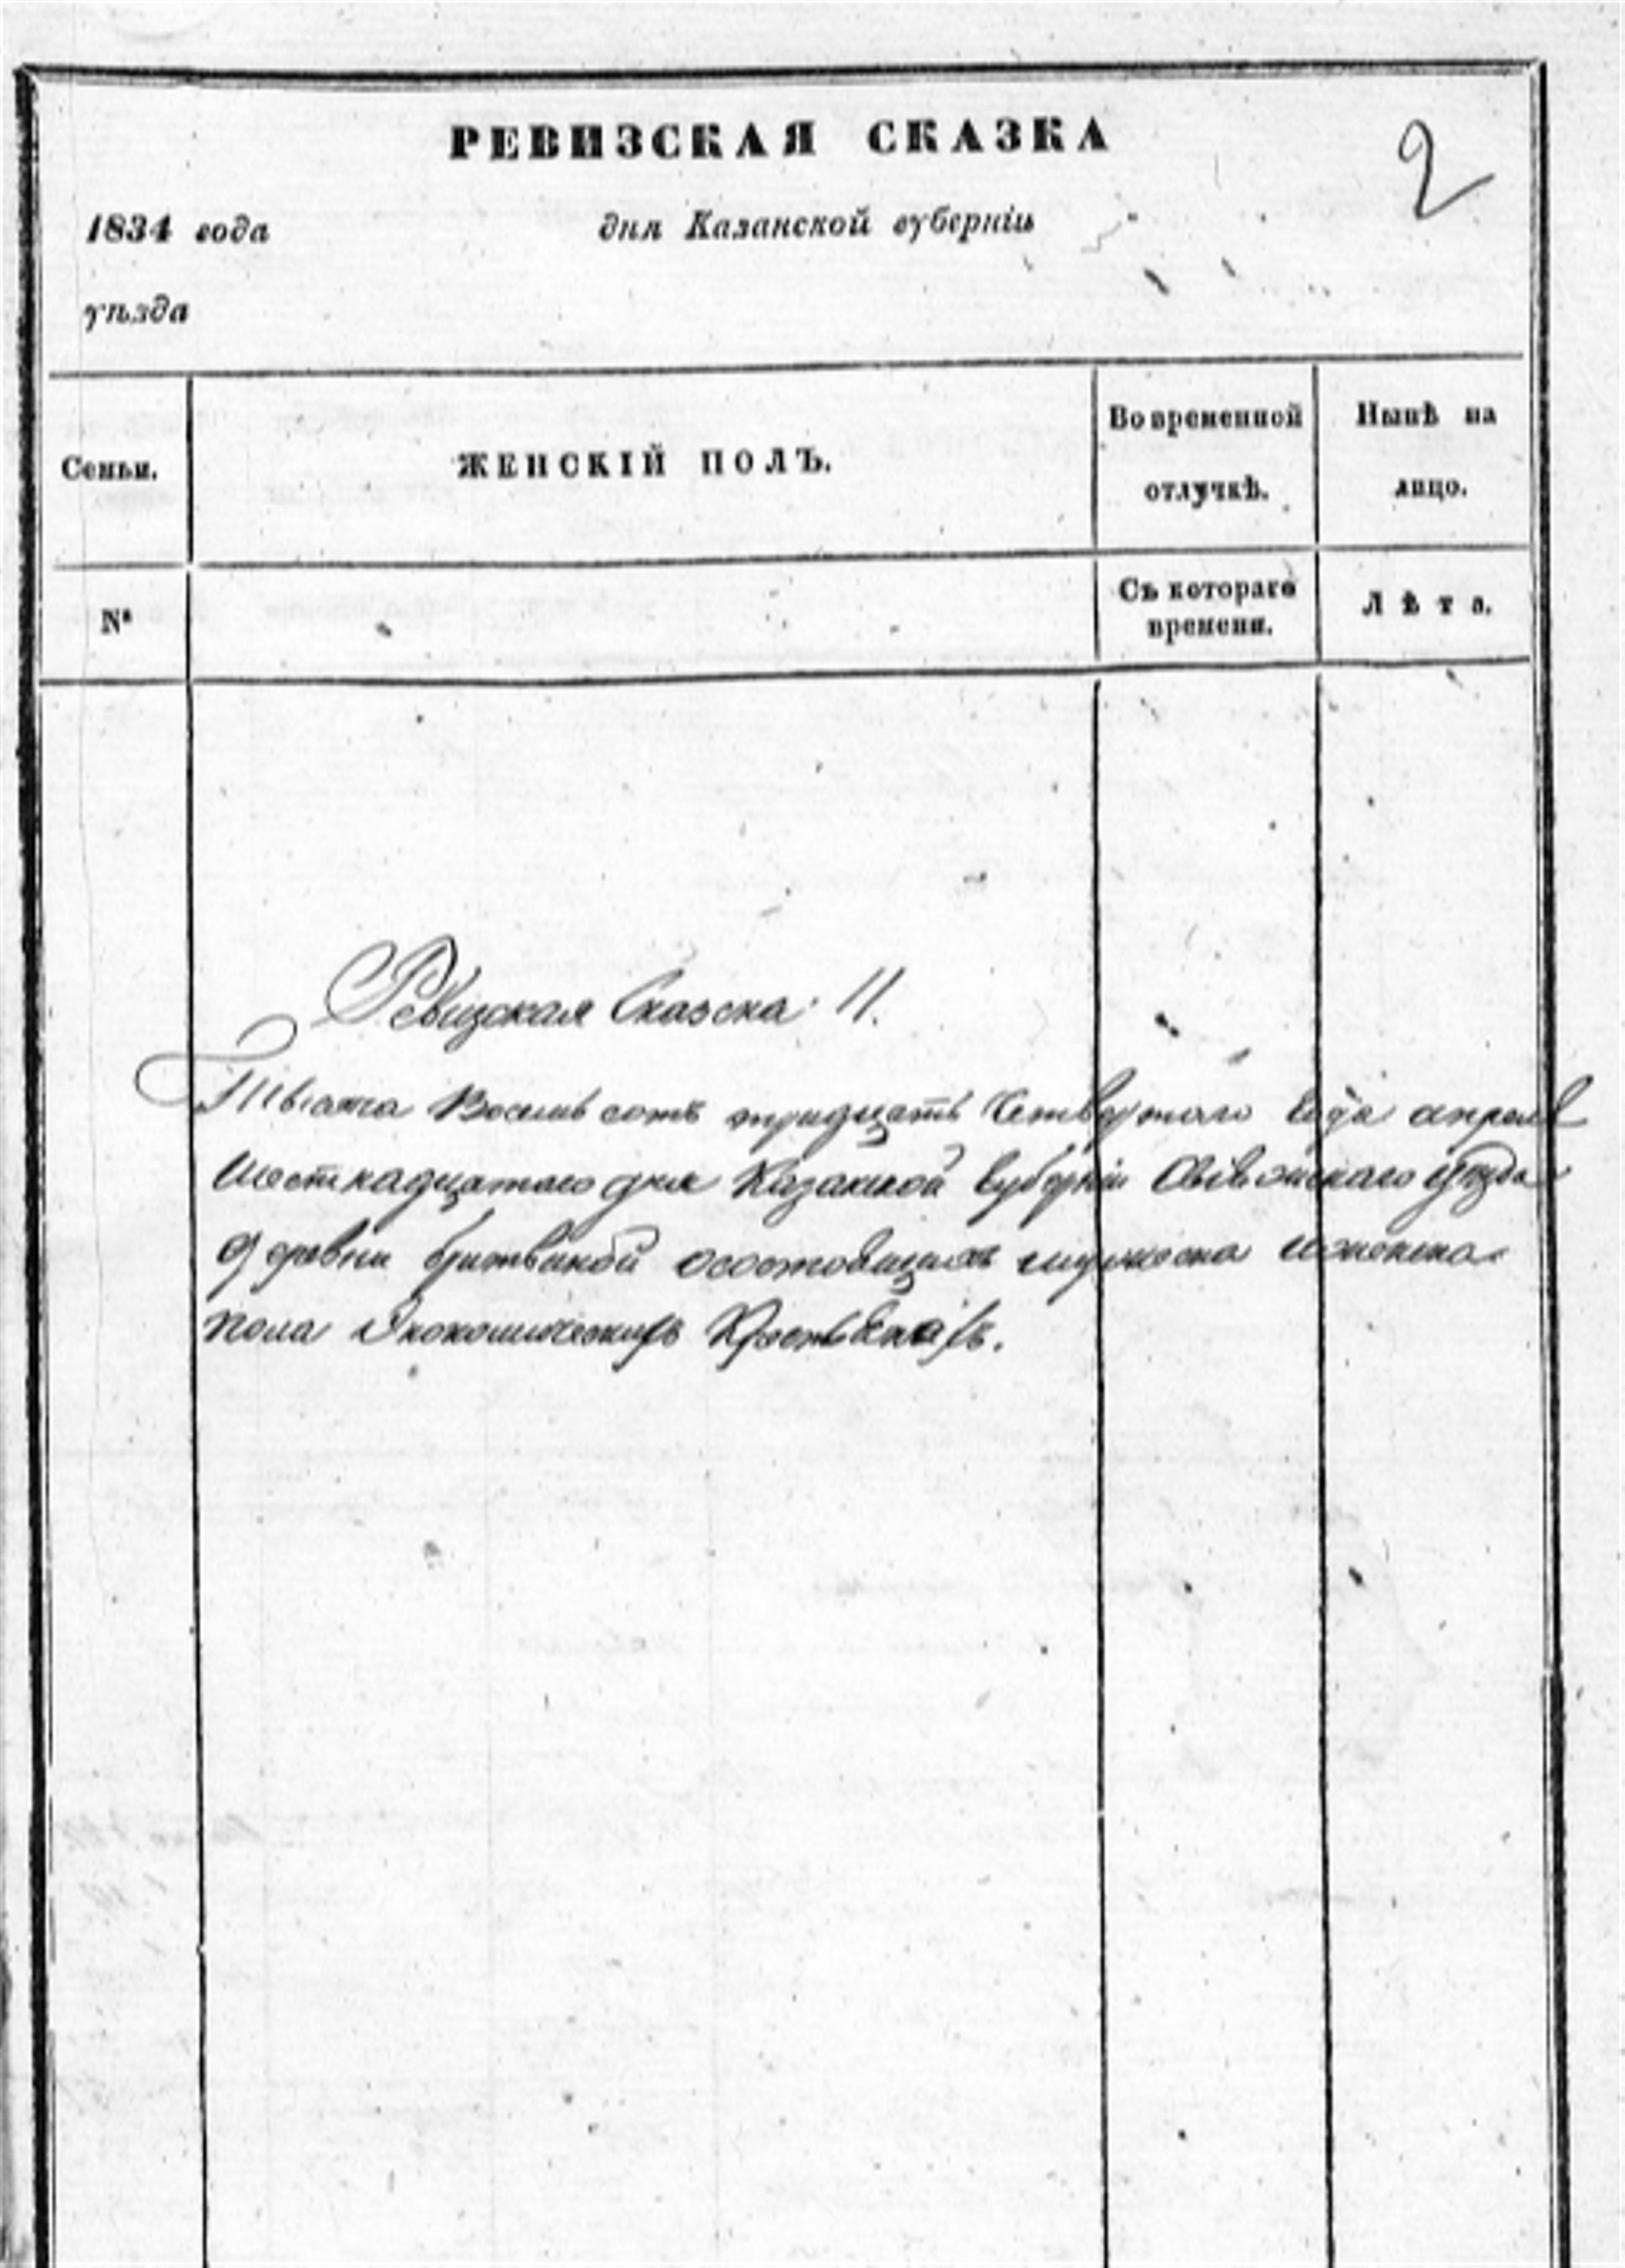 РЕВИЗСКАЯ СКАЗКА
2
1834 года дня Казанской губерніи
уѣзда
Семьи. ЖЕНСКІЙ ПОЛЪ. Во временной отлучкѣ. Нынѣ на лицо.
№ Съ котораго времени. Лѣта.
Ревизская Сказска 11.
Тысяча Восемь сотъ тридцать Четвертаго Года апреля
Шестнадцатого дня Казанской Губерніи Свіяжскаго уѣзда
Деревни осостовщихъ мужеска иженска
пола Экономическихъ Крестьянахъ.